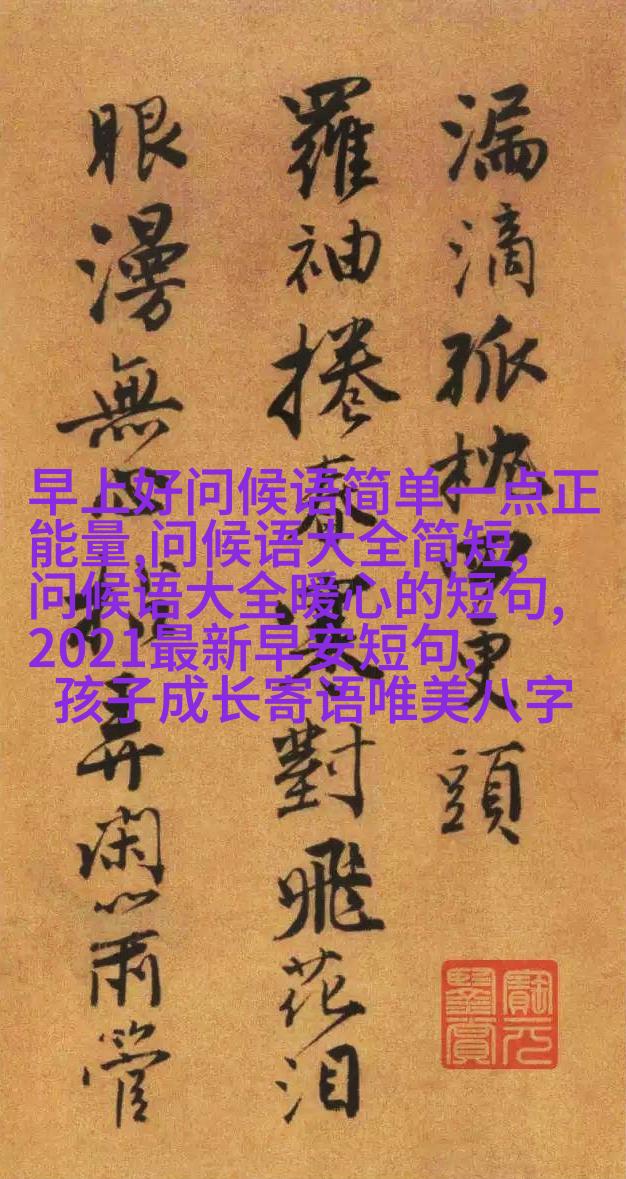 漏滴孤更頭
羅袖捲春寒對飛花泪
眼漫無弄閑
早上好问候语简单一点正
能量,问候语大全简短,
问候语大全暖心的短句,
2021最新早安短句,
孩子成长寄语唯美八字